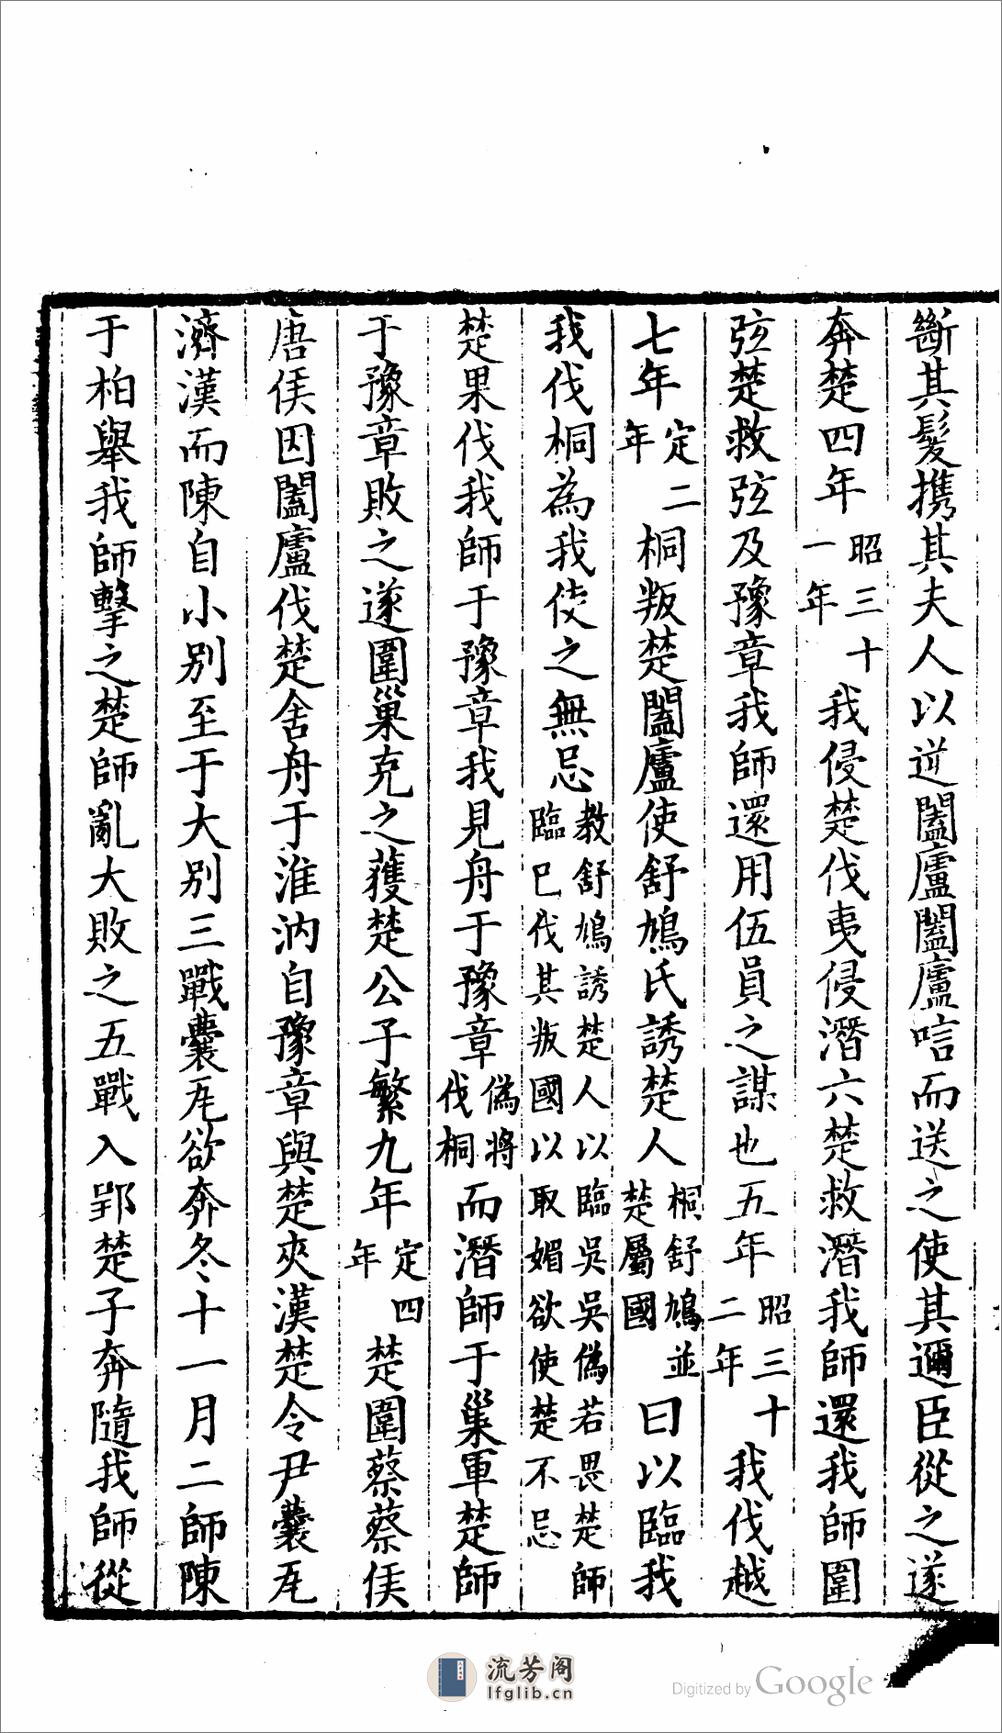 斷其髮携其夫人以逆闔廬闔廬唁而送之使其邇臣從之遂
奔楚四年昭三十一年我侵楚伐夷侵潛六楚救潛我師還我師圍
弦楚救弦及豫章我師還用伍員之謀也五年昭三十二年我伐越
七年定二年桐叛楚闔廬使舒鳩氏誘楚人桐舒鳩並楚屬國曰以臨我
我伐桐為我使之無忌教舒鳩誘楚人以臨吳吳偽若畏楚師臨已伐其叛國以取媚欲使楚不忌
楚果伐我師于豫章我見舟于豫章偽將伐桐而潛師于巢軍楚師
于豫章敗之遂圍巢克之獲楚公子繁九年定四年楚圍蔡蔡侯
唐侯因闔廬伐楚舍舟于淮汭自豫章與楚夾漢楚令尹囊瓦
濟漢而陳自小別至于大別三戰囊瓦欲奔冬十一月二師陳
于柏舉我師擊之楚師亂大敗之五戰入郢楚子奔隨我師從
流芳阁
lfglib.cn
Digitized by Google